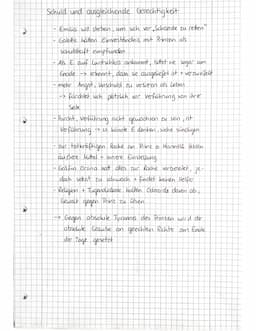 Schuld und ausgleichende Gerechtigkeit
- Emilia will sterben, um sich vor „Schande zu retten"
- Galotti hätten Einverständnis mit Prinzen als
schuldhaft empfunden
- Als E auf Lustschloss ankommt, bittet sie sogar um
Gnade → erkennt, dass sie ausgeliefert ist + verzweifelt
- mehr Angst, Unschuld zu verlieren als Leben
→ fürchtet sich plötzlich vor Verführung von ihrer
Seite
- Furcht, Verführung nicht gewachsen zu sein, ist
Verführung → so könnte E denken, nicht sündigen
- zur tatkräftigen Rache an Prinz + Marinelli fehlen
äußere Mittel + innere Einstellung
- Gräfin Orsina hat alles zur Rache vorbereitet, je-
doch selbst zu schwach + findet keinen Helfer
- Religion + Tugendideale halten Odoardo davon ab,
Gewalt gegen Prinz zu üben
→ Gegen absolute Tyrannei des Prinzen wird die
absolute Gewalt des gerechten Richters am Ende
der Tage gesetzt